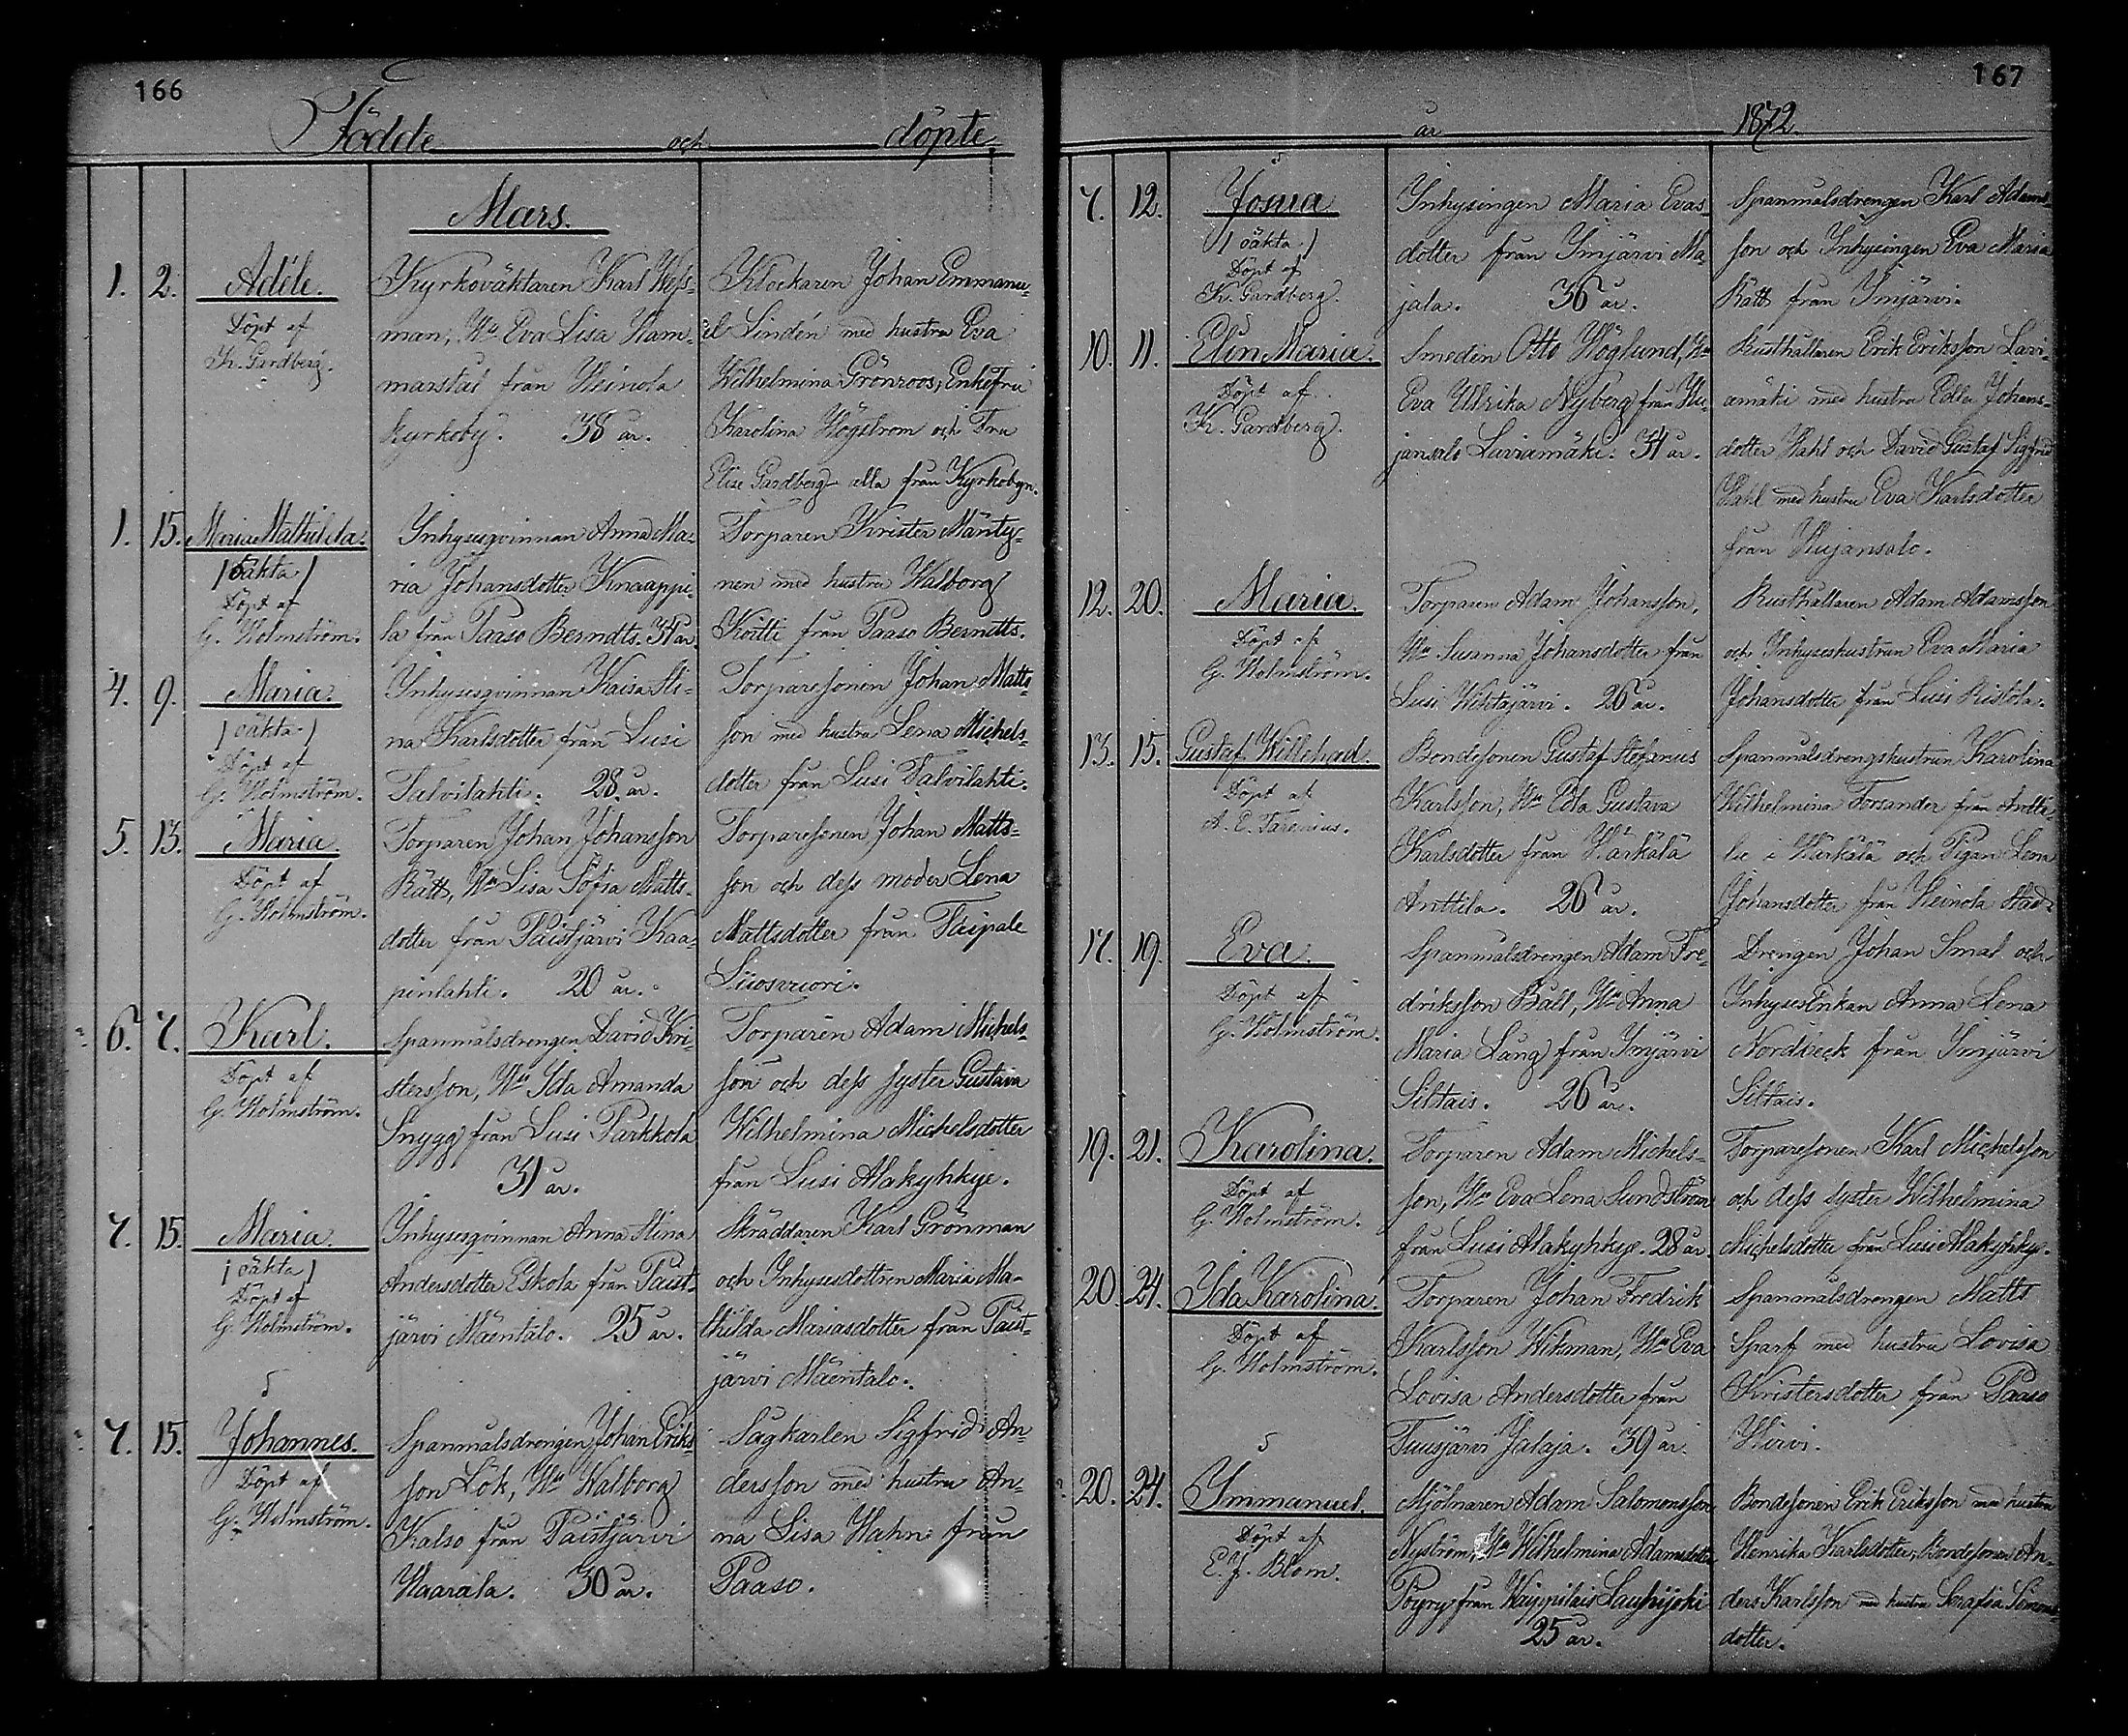 166
Födde och döpte
Mars.
1. 2. Adéle.
Döpt af
K. Gardberg.
Kyrkoväktaren Karl Wess-
man, Hu Eva Lisa Ham-
marstål från Heinola
kyrkoby. 38 år.
Klockaren Johan Emmanu-
el Lindén med hustru Eva
Wilhelmina Grönroos, Enkefru
Karolina Högström och Fru
Elise Gardberg alla från Kyrkobyn.
1. 15. Maria Mathilda.
/oäkta/
Döpt af
G. Holmström.
Inhysesqvinnan Anna Ma-
ria Johansdotter Knaappi-
la från Paaso Berndts. 31 år.
Torparen Krister Mänty-
nen med hustru Walborg
Koitti från Paaso Berndts.
4. 9. Maria.
/oäkta/
Döpt af
G. Holmström.
Inhysesqvinnan Kaisa Sti-
na Karlsdotter från Lusi
Talvilahti. 28 år.
Torparesonen Johan Matts-
son med hustru Lena Michels-
dotter från Lusi Talvilahti.
5. 13. Maria.
Döpt af
G. Holmström.
Torparen Johan Johansson
Rätt, Hu Lisa Sofia Matts-
dotter från Paistjärvi Kaa-
pinlahti. 20 år.
Torparesonen Johan Matts-
son och dess moder Lena
Mattsdotter från Taipale
Liiosvuori.
6. 7. Karl.
Döpt af
G. Holmström.
Spanmålsdrengen David Kri-
stersson, Hu Ida Amanda
Snygg från Lusi Purkkola
31 år.
Torparen Adam Michels-
son och dess syster Gustava
Wilhelmina Michelsdotter
från Lusi Alakyhkye.
7. 15. Maria.
/oäkta/
Döpt af
G. Holmström.
Inhysesqvinnan Anna Stina
Andersdotter Eskola från Paist-
järvi Mäentalo. 25 år.
Skräddaren Karl Grönman
och Inhysesdottren Maria Ma-
thilda Mariasdotter från Paist-
järvi Mäentalo.
7. 15. Johannes.
Döpt af
G. Holmström.
Spanmålsdrengen Johan Eriks-
son Lök, Hu Walborg
Kalso från Paistjärvi
Haarala. 30 år.
Sågkarlen Sigfrid An-
dersson med hustru An-
na Lisa Hahn från
Paaso.
167
år 1872.
7. 12. Josua
/oäkta/
Döpt af
K. Gardberg.
Inhysingen Maria Evas-
dotter från Imjärvi Ma-
jala. 36 år.
Spanmålsdrengen Karl Adams-
son och Inhysingen Eva Maria
Rätt från Imjärvi.
10. 11. Elin Maria.
Döpt af
K. Gardberg.
Smeden Otto Höglund, Hu
Eva Ulrika Nyberg från Hu-
jansalo Laviamäki. 34 år.
Rusthållaren Erik Eriksson Lavi-
amäki med hustru Edla Johans-
dotter Hahl och David Gustaf Sigfrid
Hahl med hustru Eva Karlsdotter
från Hujansalo.
12. 20. Maria.
Döpt af
G. Holmström.
Torparen Adam Johansson,
Hu Susanna Johansdotter från
Lusi Wihtajärvi. 26 år.
Rusthållaren Adam Adamsson
och Inhyseshustrun Eva Maria
Johansdotter från Lusi Ristola.
13. 15. Gustaf Willehad.
Döpt af
A. E. Farenius.
Bondesonen Gustaf Stefanus
Karlsson, Hu Edla Gustava
Karlsdotter från Härkälä
Anttila. 26 år.
Spanmålsdrengshustrun Karolina
Wilhelmina Forsander från
i Härkälä och Pigan Lena
Johansdotter från Heinola stad.
17. 19. Eva.
Döpt af
G. Holmström.
Spanmålsdrengen Adam Fre-
driksson Båll, Hu Anna
Maria Lång från Imjärvi
Siltais. 26 år.
Drengen Johan Smal och
Inhysesenkan Anna Lena
Nordbeck från Imjärvi
Siltais.
19. 21. Karolina.
Döpt af
G. Holmström.
Torparen Adam Michels-
son, Hu Eva Lena Sundström
från Lusi Alakyhkye. 28 år.
Torparesonen Karl Michelsson
och dess syster Wilhelmina
Michelsdotter från Lusi Alakyhkye.
20. 24. Ida Karolina.
Döpt af
G. Holmström.
Torparen Johan Fredrik
Karlsson Wikman, Hu Eva
Lovisa Andersdotter från
Tuusjärvi Jalaja. 39 år.
Spanmålsdrengen Matts
Sparf med hustru Lovisa
Kristersdotter från Paaso
Hirvi.
20. 24. Immanuel.
Döpt af
E. J. Blom.
Mjölnaren Adam Salomonsson
Nyström, Hu Wilhelmina Adamsdotter
Pöyry från Wäyppilais Lauhijoki
25 år.
Bondesonen Erik Eriksson med hustru
Henrika Karlsdotter, Bondesonen An-
ders Karlsson med hustru Serafia Simons-
dotter.